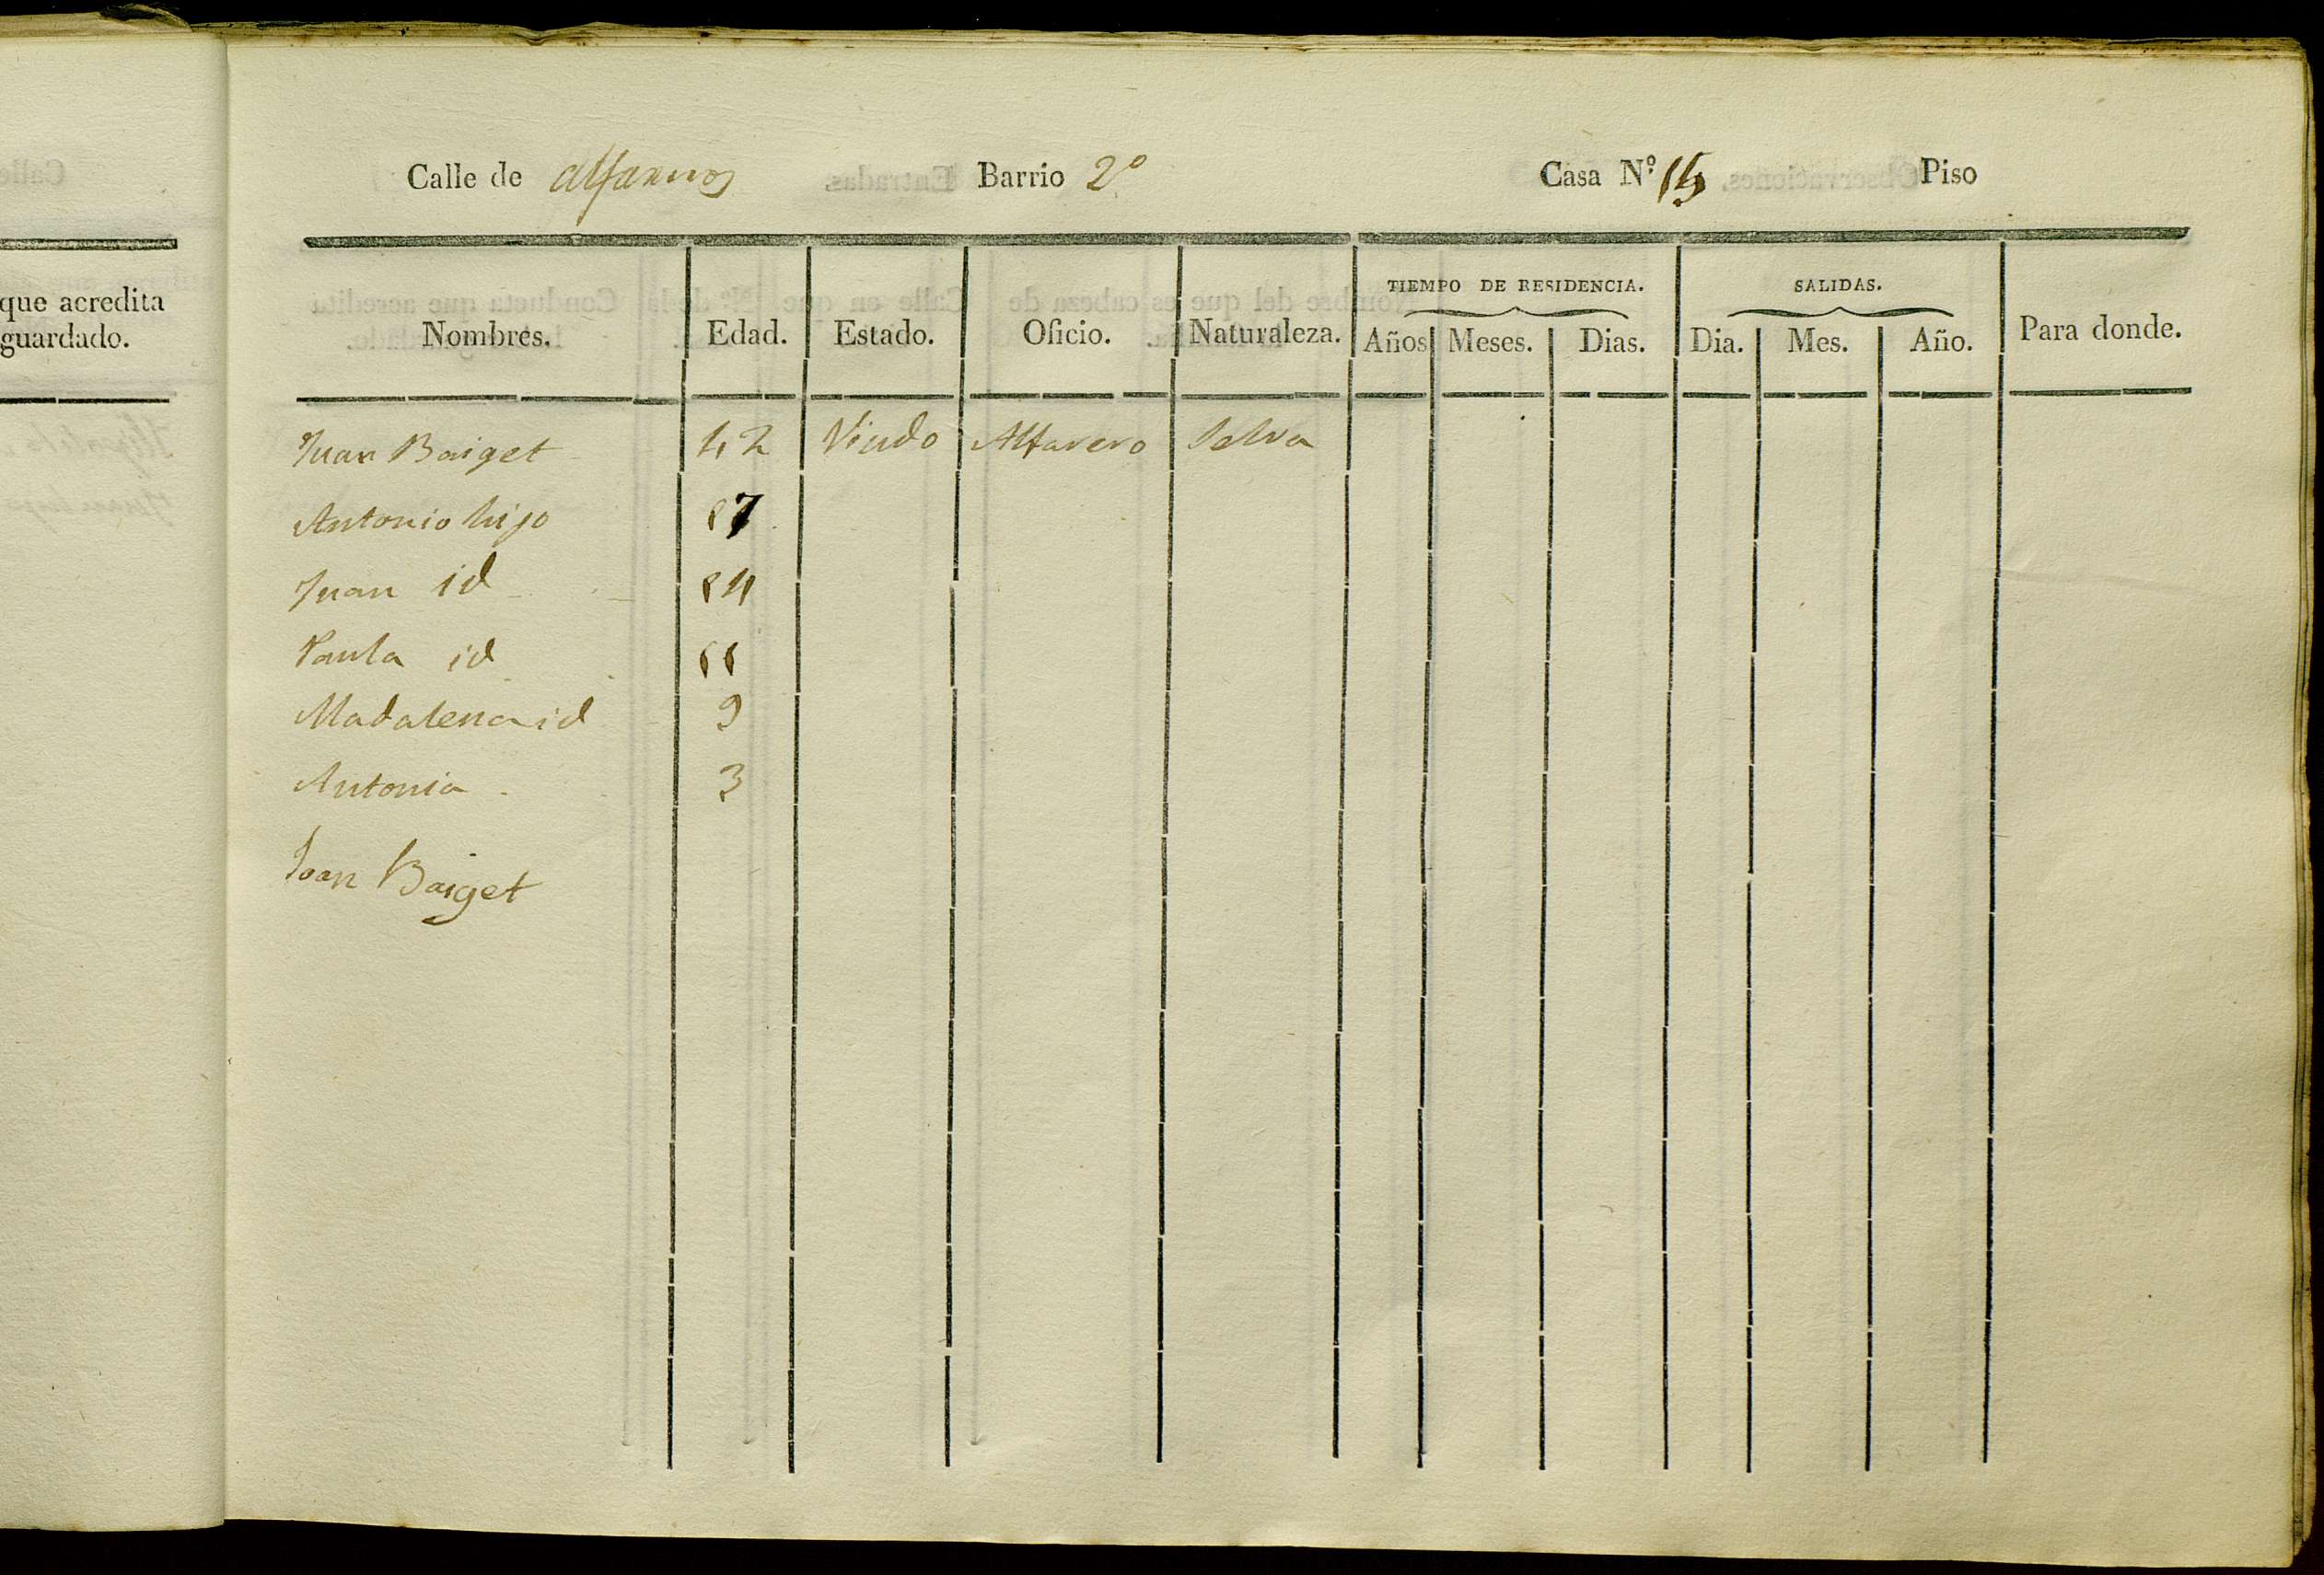 que acredita
guardado.
Calle de Alfareros Barrio 2º Casa N.º Piso
Nombres. Edad. Estado. Oficio. Naturaleza. TIEMPO DE RESIDENCIA. SALIDAS. Para donde.
Años Meses. Dias. Dia. Mes. Año.
Juan Baiget 42 Viudo Alfarero Selva
Antonio hijo 17
Juan id 14
Paula id 11
Madalena id 9
Antonia 3
Joan Baiget